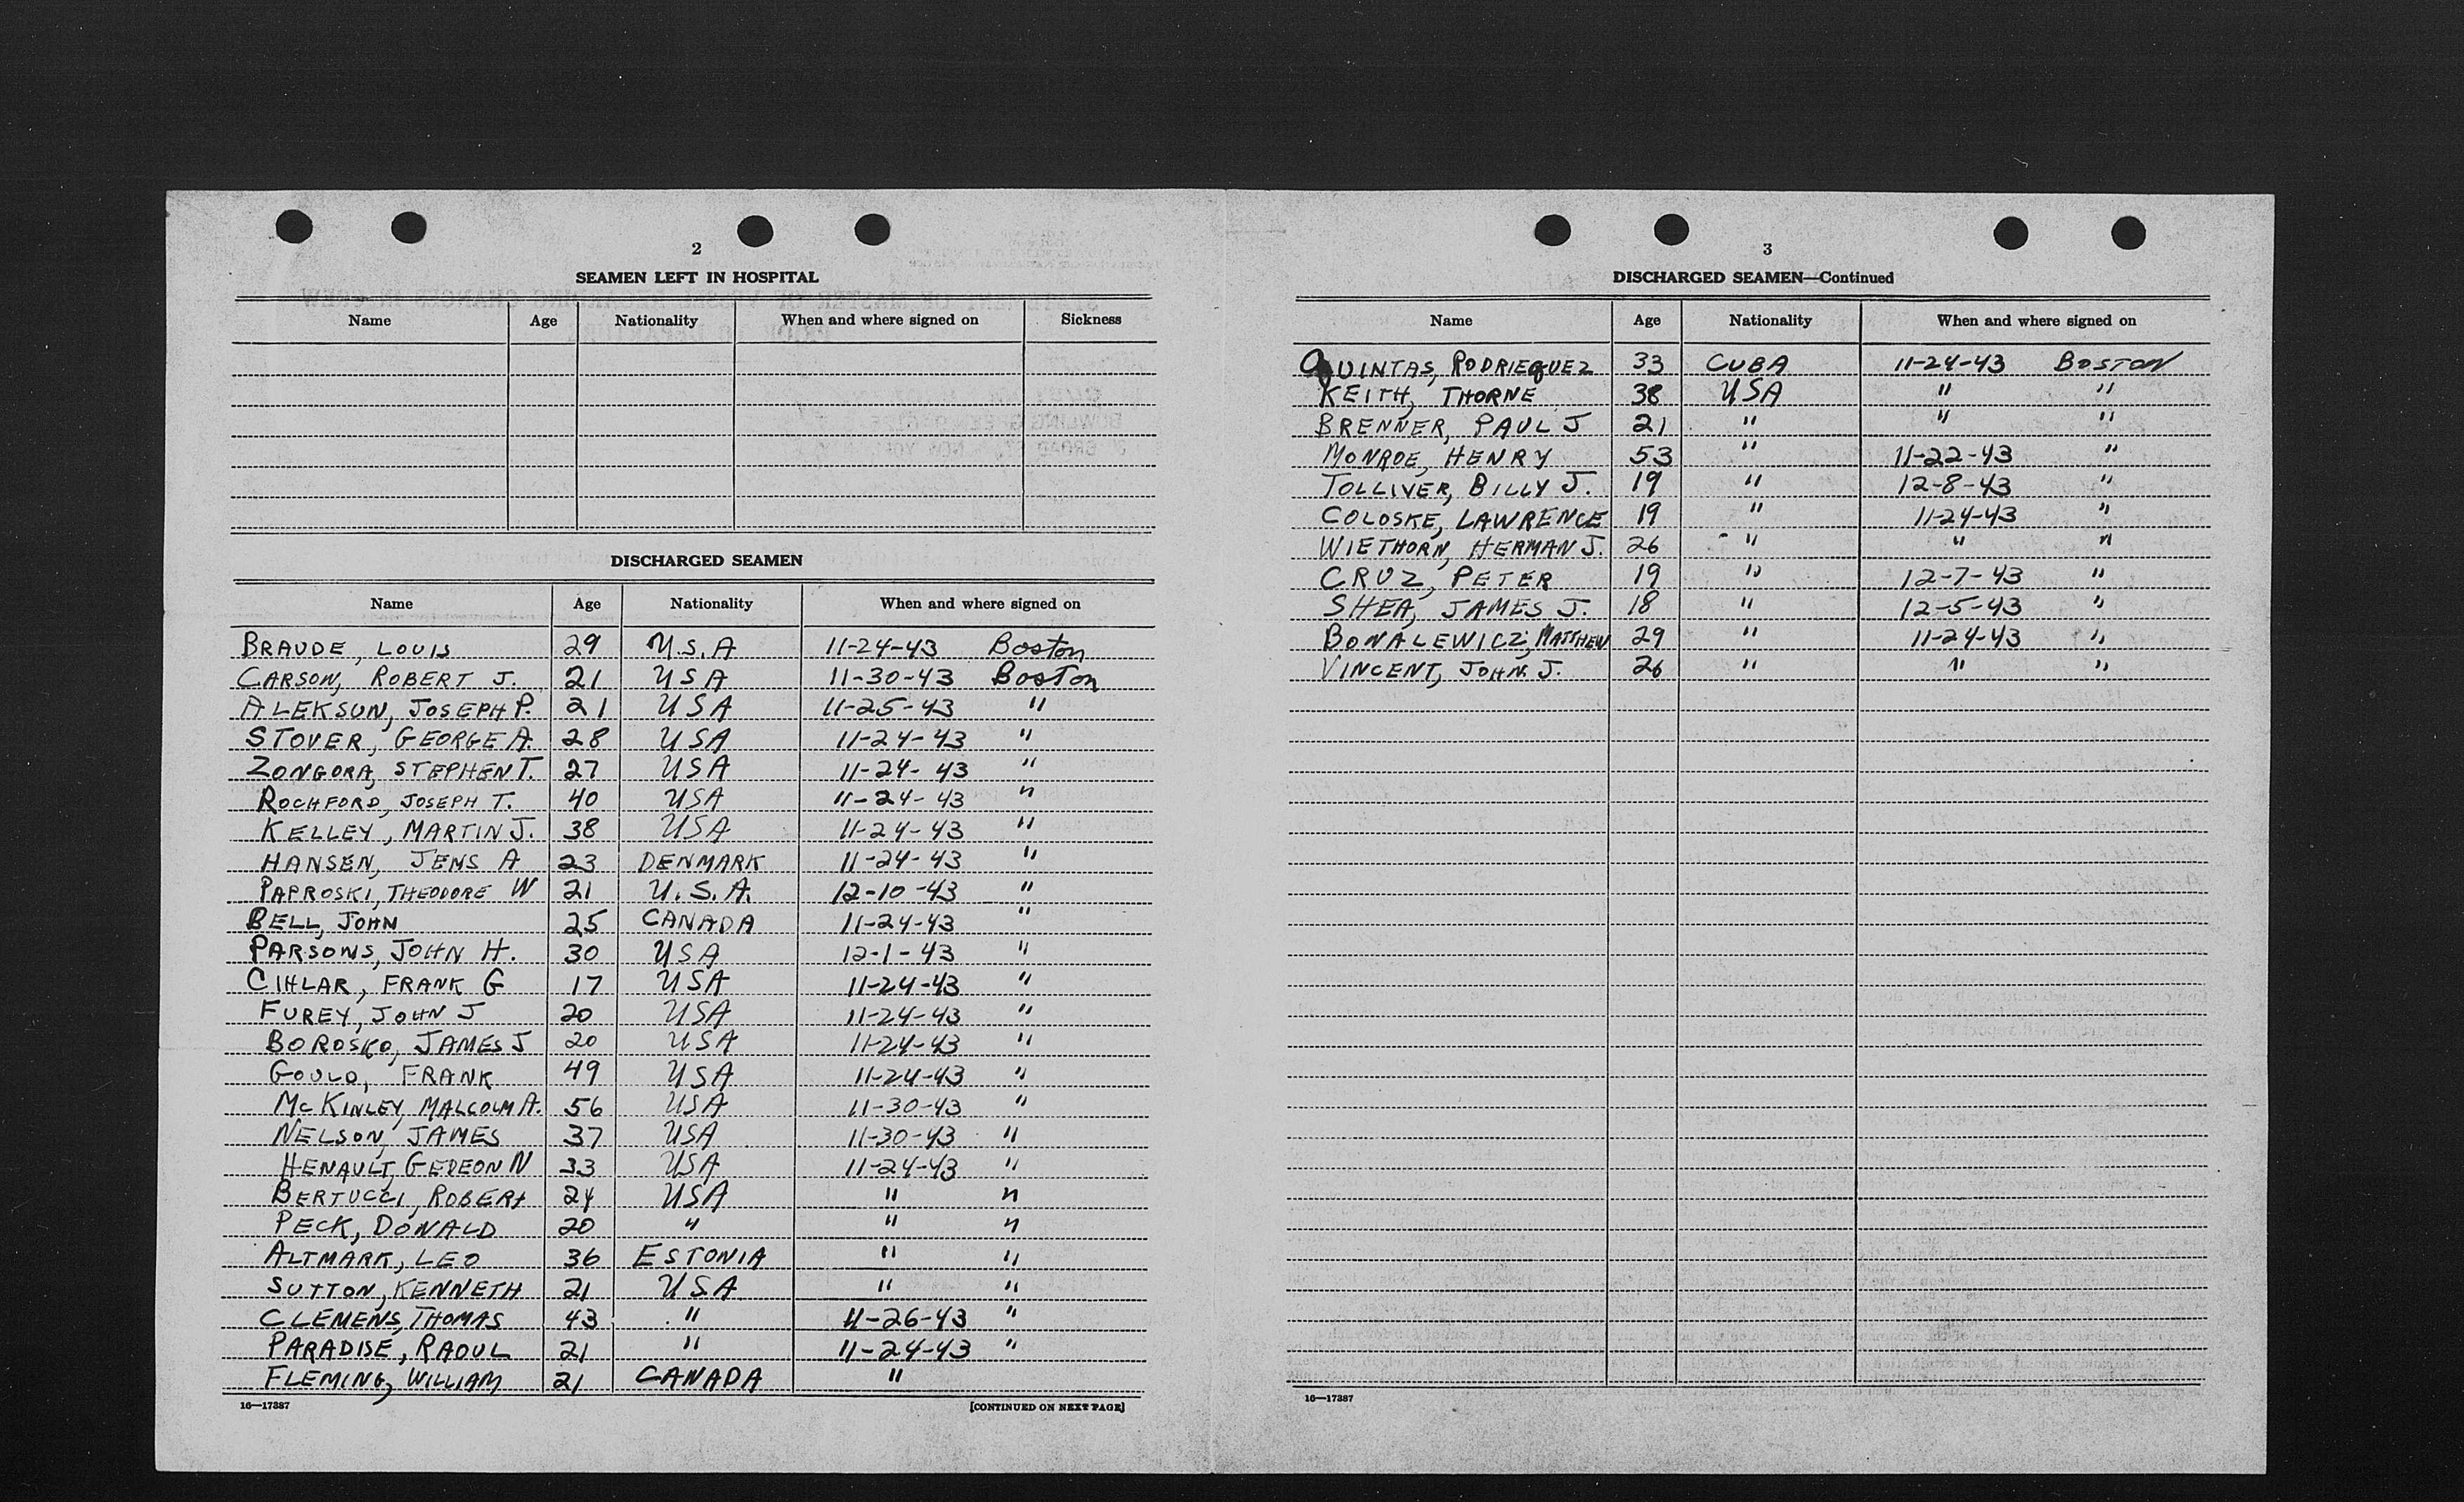 2
SEAMEN LEFT IN HOSPITAL
Name Age Nationality When and where signed on Sickness
DISCHARGED SEAMEN
Name Age Nationality When and where signed on
BRAUDE, LOUIS 29 U.S.A 11-24-43 Boston
CARSON, ROBERT J. 21 USA 11-30-43 Boston
ALEKSUN, JOSEPH P. 21 USA 11-25-43 "
STOVER, GEORGE A. 28 USA 11-24-43 "
ZONGORA, STEPHEN T. 27 USA 11-24-43 "
ROCHFORD, JOSEPH T. 40 USA 11-24-43 "
KELLEY, MARTIN J. 38 USA 11-24-43 "
HANSEN, JENS A 23 DENMARK 11-24-43 "
PAPROSKI, THEODORE W 21 U.S.A. 12-10-43 "
BELL, JOHN 25 CANADA 11-24-43 "
PARSONS, JOHN H. 30 USA 12-1-43 "
CIHLAR, FRANK G 17 USA 11-24-43 "
FUREY, JOHN J 20 USA 11-24-43 "
BOROSKO, JAMES J 20 USA 11-24-43 "
GOULD, FRANK 49 USA 11-24-43 "
McKINLEY, MALCOLM A. 56 USA 11-30-43 "
NELSON, JAMES 37 USA 11-30-43 "
HENAULT, GEDEON N 33 USA 11-24-43 "
BERTUCCI, ROBERT 24 USA " "
PECK, DONALD 20 " " "
ALTMARK, LEO 36 ESTONIA " "
SUTTON, KENNETH 21 USA " "
CLEMENS, THOMAS 43 " 11-26-43 "
PARADISE, RAOUL 21 " 11-24-43 "
FLEMING, WILLIAM 21 CANADA "
16—17387 [CONTINUED ON NEXT PAGE]
3
DISCHARGED SEAMEN—Continued
Name Age Nationality When and where signed on
QUINTAS, RODRIEQUEZ 33 CUBA 11-24-43 BOSTON
KEITH, THORNE 38 USA " "
BRENNER, PAUL J 21 " " "
MONROE, HENRY 53 " 11-22-43 "
TOLLIVER, BILLY J. 19 " 12-8-43 "
COLOSKE, LAWRENCE 19 " 11-24-43 "
WIETHORN, HERMAN J. 26 " " "
CRUZ, PETER 19 " 12-7-43 "
SHEA, JAMES J. 18 " 12-5-43 "
BONALEWICZ, MATTHEW 29 " 11-24-43 "
VINCENT, JOHN J. 26 " " "
16—17387